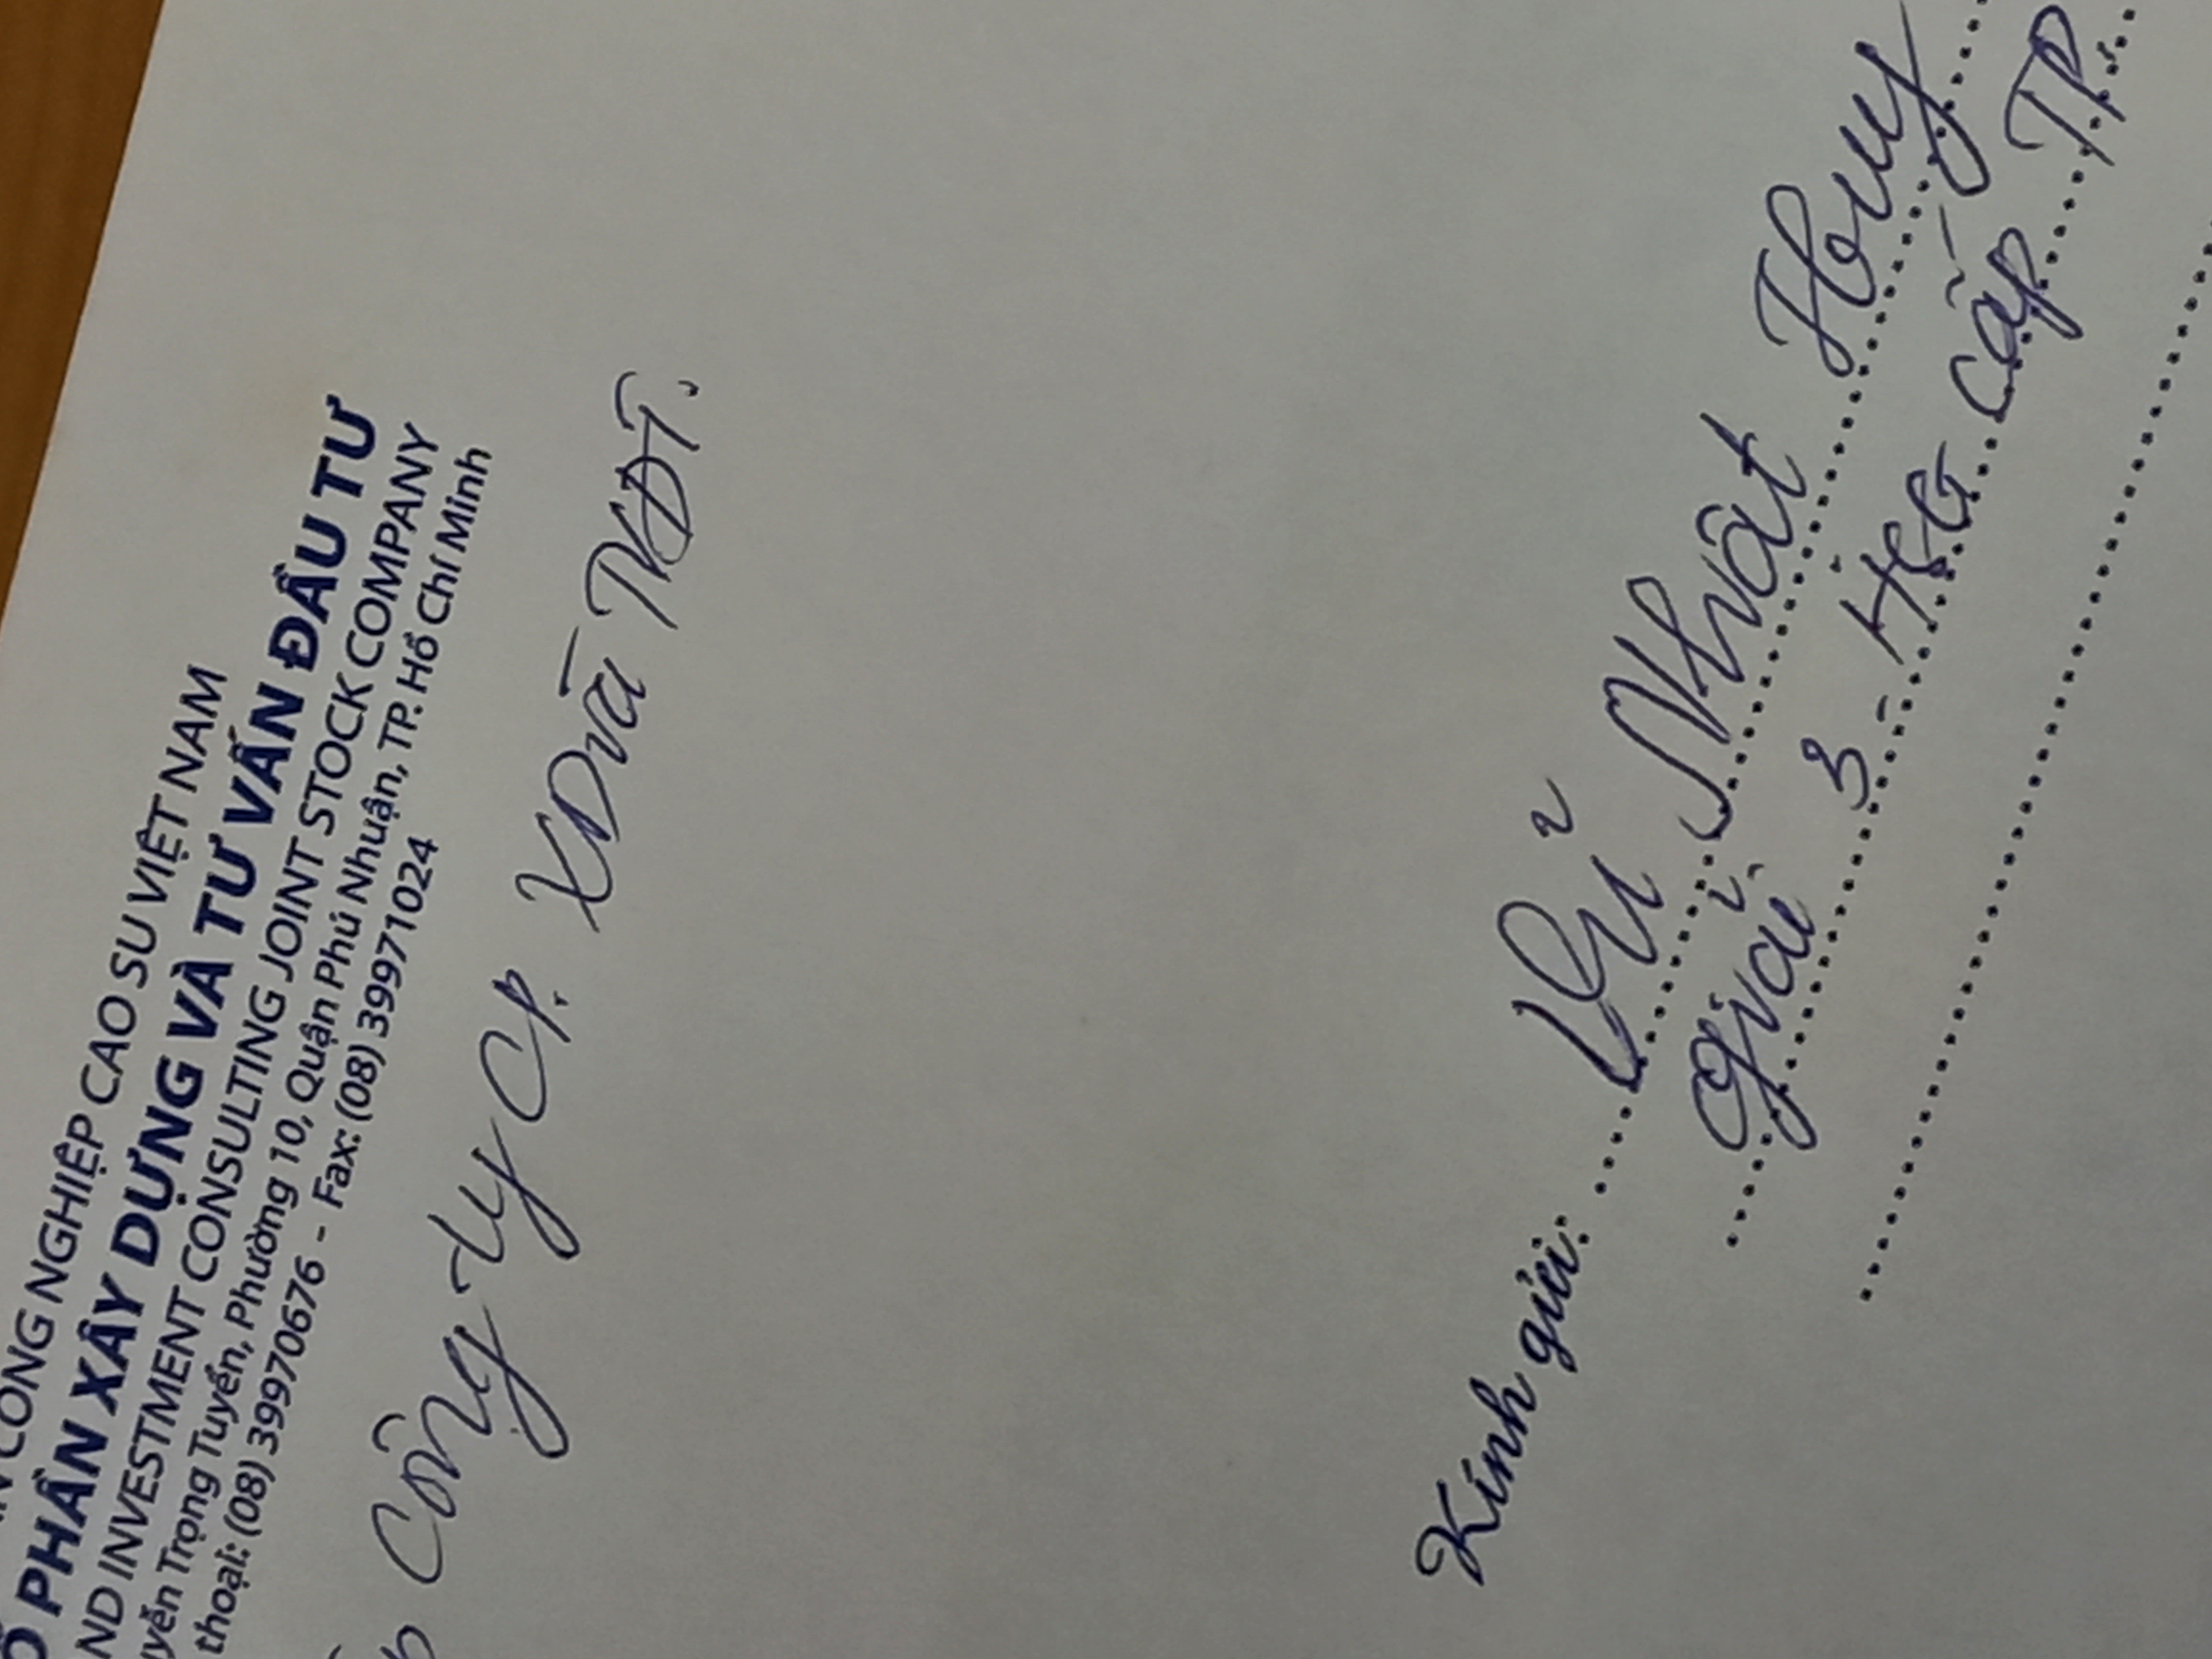 CÔNG NGHIỆP CAO SU VIỆT NAM
PHẦN XÂY DỰNG VÀ TƯ VẤN ĐẦU TƯ
ND INVESTMENT CONSULTING JOINT STOCK COMPANY
yễn Trọng Tuyển, Phường 10, Quận Phú Nhuận, TP. Hồ Chí Minh
thoại: (08) 39970676 - Fax: (08) 39971024
Công ty CP. XD và TVĐT.
Kính gửi: Vũ Nhật Huy
giải 3 - HSG cấp TP.